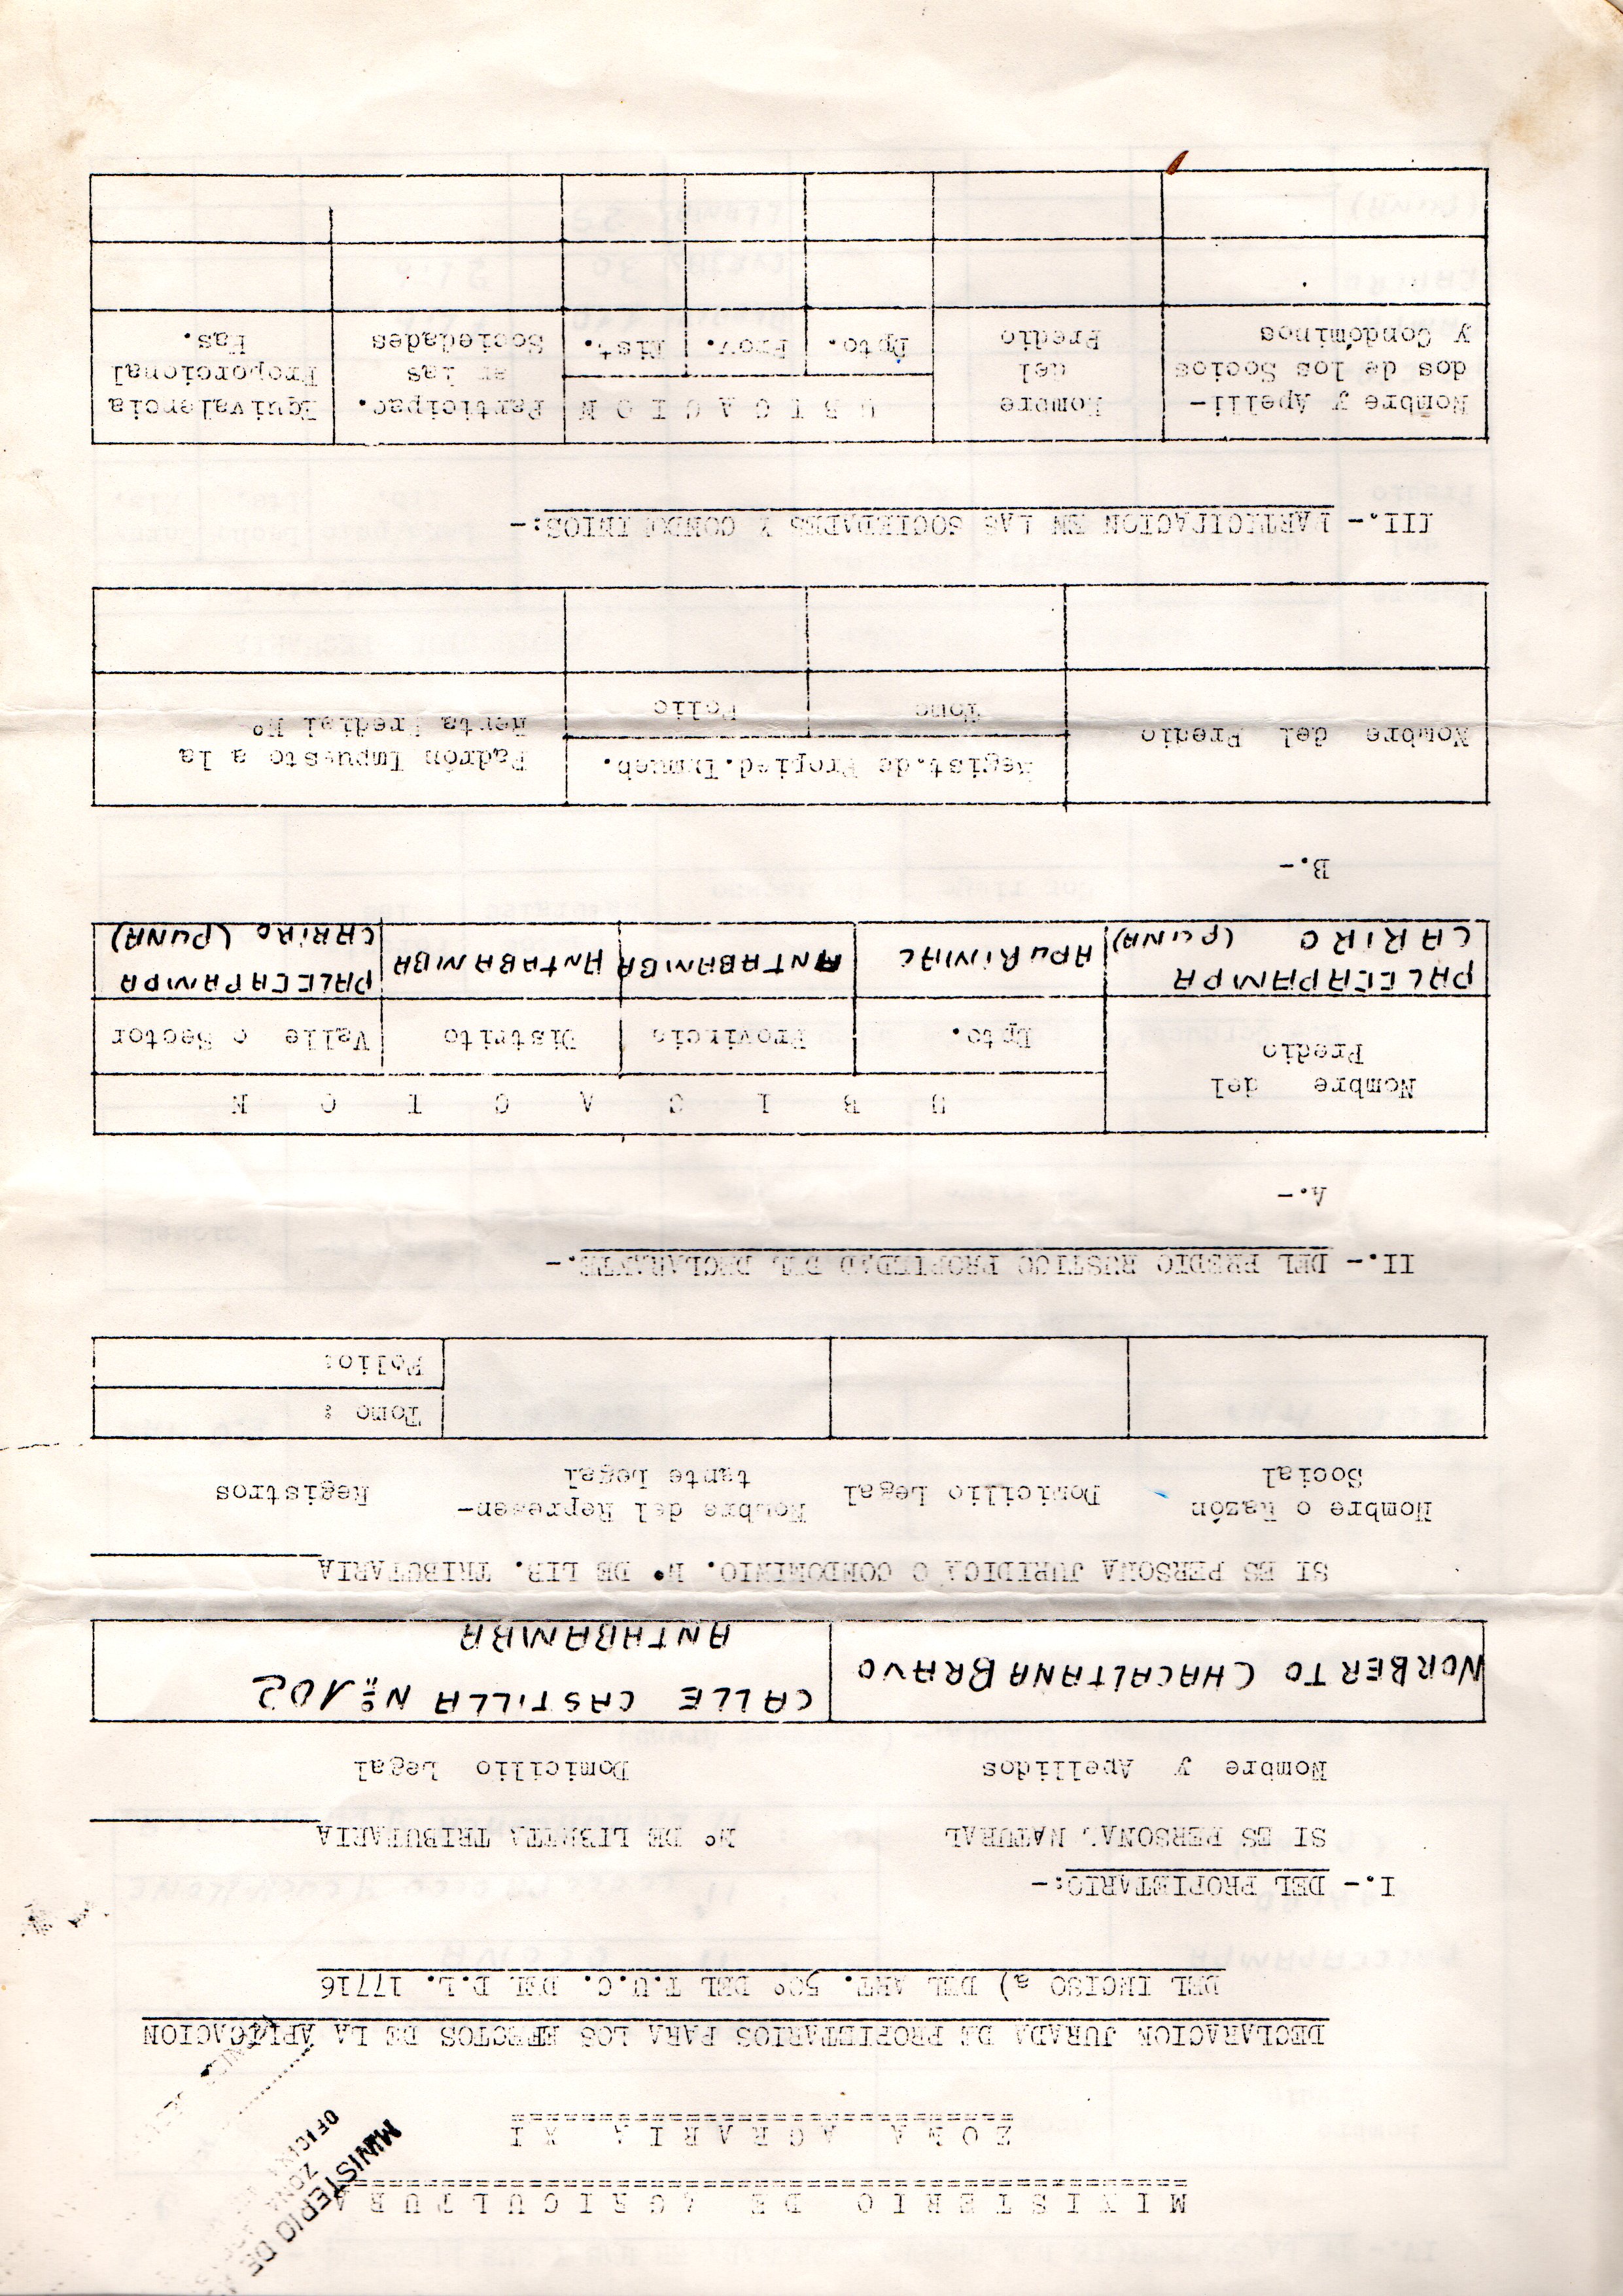 MINISTERIO DE AGRICULTURA
ZONA AGRARIA XI
MINISTERIO DE
ZONA
DECLARACION JURADA DE PROPIETARIOS PARA LOS EFECTOS DE LA APLICACION
DEL INCISO a) DEL ART. 50º DEL T.U.C. DEL D.L. 17716
I.- DEL PROPIETARIO:-
SI ES PERSONA NATURAL Nº DE LIBRETA TRIBUTARIA
Nombre y Apellidos Domicilio Legal
NORBERTO CHACALTANA BRAVO CALLE CASTILLA Nº 102
ANTABAMBA
SI ES PERSONA JURIDICA O CONDOMINIO. Nº DE LIB. TRIBUTARIA
Nombre o Razón Social Domicilio Legal Nombre del Represen-tante Legal Registros
Tomo :
Folio:
II.- DEL PREDIO RUSTICO PROPIEDAD DEL DECLARANTE.-
A.-
Nombre del Predio U B I C A C I O N
Dpto. Provincia Distrito Valle o Sector
PALCCAPAMPA CARIRO (PUNA) APURIMAC ANTABAMBA ANTABAMBA PALCCAPAMPA CARIRO (PUNA)
B.-
Nombre del Predio Regist.de Propied.Inmueb. Padrón Impuesto a la Renta Predial Nº
Tomo Folio
III.- PARTICIPACION EN LAS SOCIEDADES Y CONDOMINIOS:-
Nombre y Apelli-dos de los Socios y Condóminos Nombre del Predio U B I C A C I O N Particpac. en las Sociedades Equivalencia Proporcional Has.
Dpto. Prov. Dist.